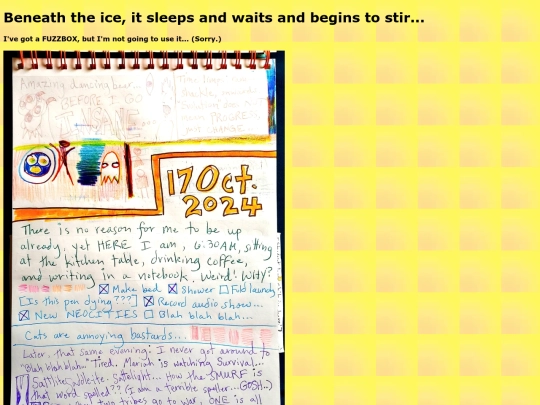 Beneath the ice, it sleeps and waits and begins to stir...
I've got a FUZZBOX, but I'm not going to use it... (Sorry.)
Amazing dancing bear...
BEFORE I GO
17 Oct.
2024
There is no reason for me to be up
already, yet HERE I am, 6:30AM, sitting
at the kitchen table, drinking coffee,
and writing in a notebook. Weird! WHY?
Make bed Shower Fold laundry
[Is this pen dying???] Record audio show...
New NEOCITIES Blah blah blah...
Cats are annoying bastards...
Later, that same evening: I never got around to
"blah blah blah." Tired. Mariah is watching Survival...
Sattlite. Satelite. Sattelight... How the SMURF is
that word spelled?? (I am a terrible speller...GOSH...)
two tribes go to war, ONE is all